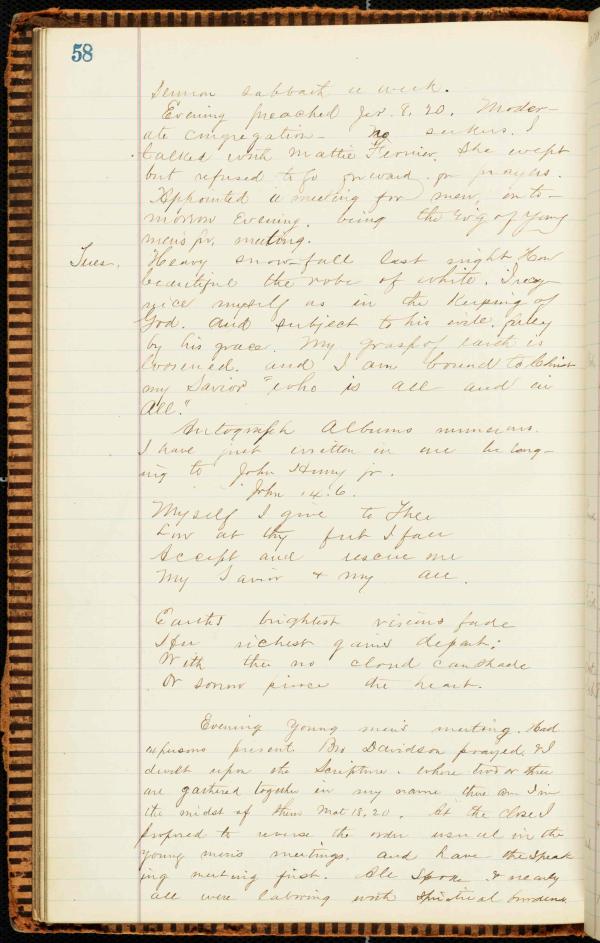 58
Sermon sabbath a week.
Evening preached Jer. 8, 20. Moder-
ate congregation - no seekers. I
talked with Mattie She wept
but refused to go forward for prayers.
Appointed a meeting for men, on to-
morrow Evening, being the Evg of Young
men's pr. meeting.
Tues. Heavy snow-fall last night How
beautiful the robe of white. I rejoy-
ice myself as in the Keeping of
God. and subject to his will, fully
by his grace. My grasp of earth is
loosened. and I am bound to Christ
my Savior "who is all and in
All."
Autograph Albums numerous.
I have just written in one belong-
ing to John Henry jr.
John 14.6.
Myself I give to Thee
Low at thy feet I fall
Accept and rescue me
My Savior & my all.
Earth's brightest visions fade
Her richest gains depart;
With thee no cloud can shade
Or sorrow pierce the heart.
Evening Young men's meeting. Had
persons present Bro Davidson prayed, & I
dwelt upon the Scripture. where two or three
are gathered together in my name there am I in
the midst of them Mat 18,20. At the close I
proposed to reverse the order usual in the
young men's meetings, and have the speak
ing meeting first. All spoke & nearly
all were laboring with spiritual burdens